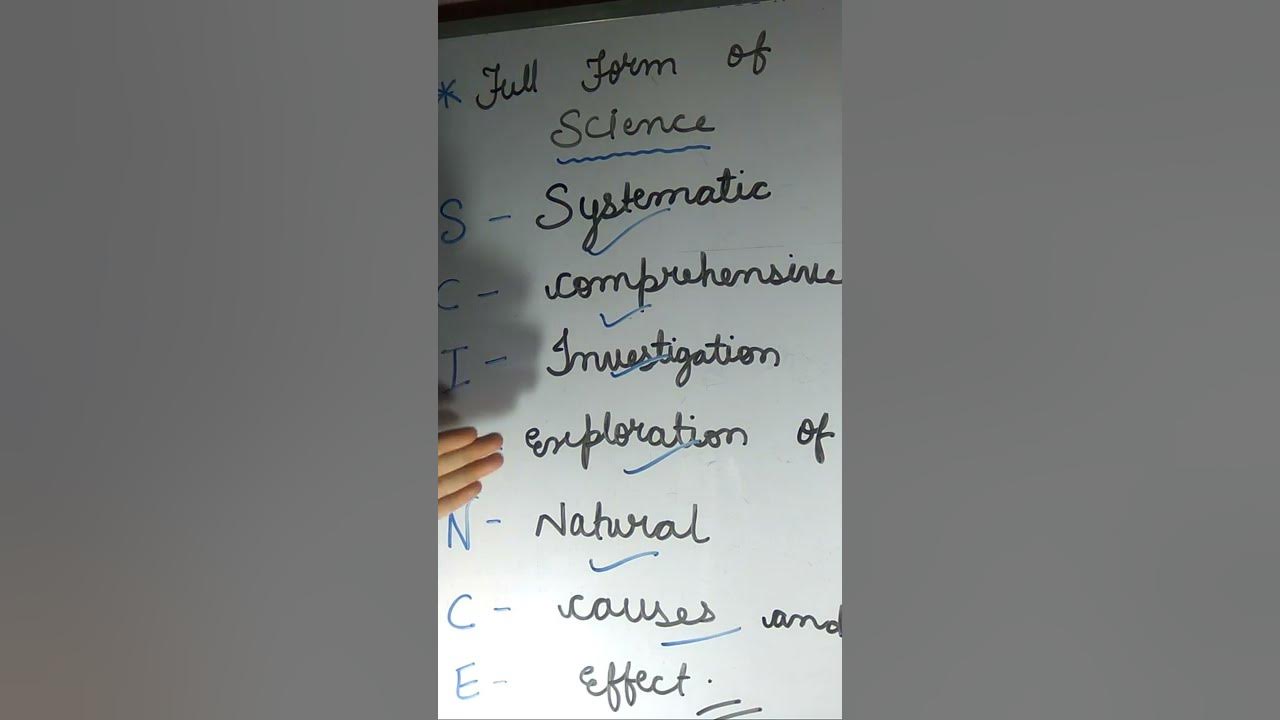 * Full Form of
Science
S - Systematic
C - comprehensive
I - Investigation
Exploration of
N - Natural
C - causes and
E - Effect.